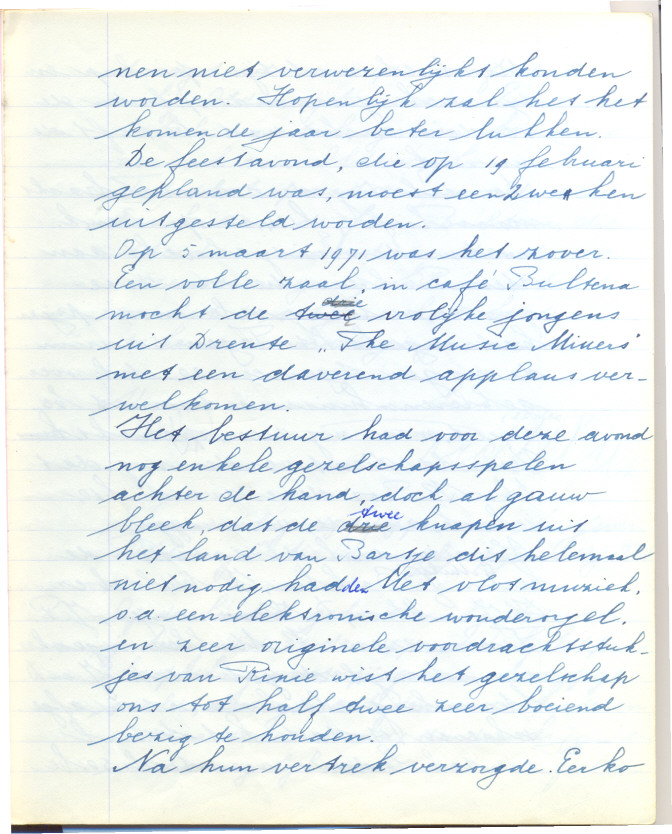 nen niet verwezenlijkt konden
worden. Hopenlijk zal het het
komende jaar beter lukken.
De feestavond, die op 19 februari
gepland was, moest een 2 weken
uitgesteld worden.
Op 5 maart 1971 was het zover.
Een volle zaal, in café Bultena
mocht de twee drie vrolijke jongens
uit Drente „The Music Mixers"
met een daverend applaus ver-
welkomen.
Het bestuur had voor deze avond
nog enkele gezelschapsspelen
achter de hand, doch al gauw
bleek, dat de drie twee knapen uit
het land van Bartje dit helemaal
niet nodig hadden. Met vlotmuziek,
o.a. een elektronische wonderorgel,
en zeer originele voordrachtsstuk-
jes van Rinie wist het gezelschap
ons tot half twee zeer boeiend
bezig te houden.
Na hun vertrek verzorgde Eerko